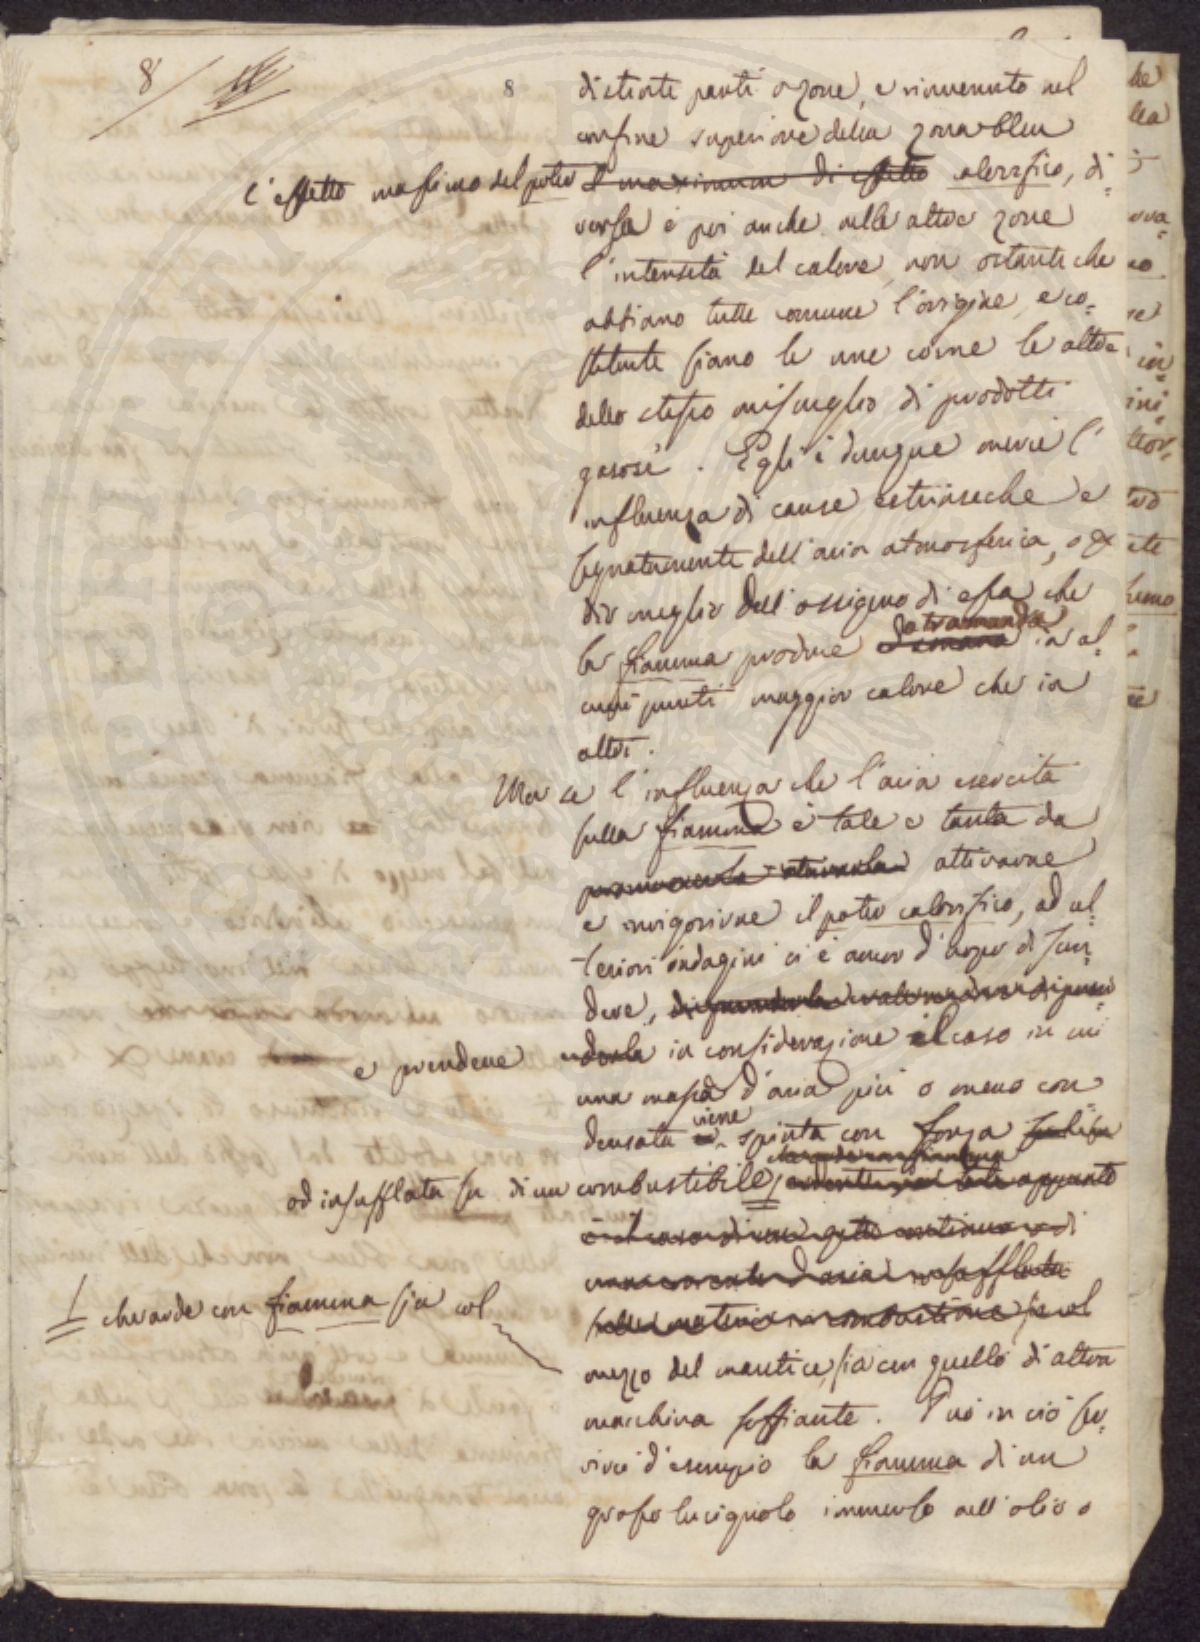 8
8
distinte parti o zone, e rinvenuto nel
confine superiore della zona bleu
l'effetto massimo del poter il maximum di effetto calorifico, di-
versa è poi anche nelle altre zone
l'intensità del calore, non ostante che
abbiano tutte comune l'origine, e co-
stituite siano le une come le altre
dello stesso miscuglio di prodotti
gasosi. Egli è dunque mercè l'
influenza di cause estrinseche e
segnatamente dell'aria atmosferica, o a
dir meglio dell'ossigeno di essa che
la fiamma produce in al-
cuni punti maggior calore che in
altri.
Ma se l'influenza che l'aria esercita
sulla fiamma è tale e tanta da
attivarne
e invigorirne il poter calorifico, ad ul-
teriori indagini ci è ancor d'uopo di scen-
dere,
e prendere in considerazione il caso in cui
una massa d'aria più o meno con-
densata viene spinta con forza
od insufflata su di un combustibile appunto
è il caso di un getto continuo di
una corrente d'aria insufflata
sulla materia in combustione sia col
che arde con fiamma sia col
mezzo del mantice, sia con quello di altra
macchina soffiante. Può in ciò ser-
virci d'esempio la fiamma di un
grosso lucignolo immerso nell'olio o